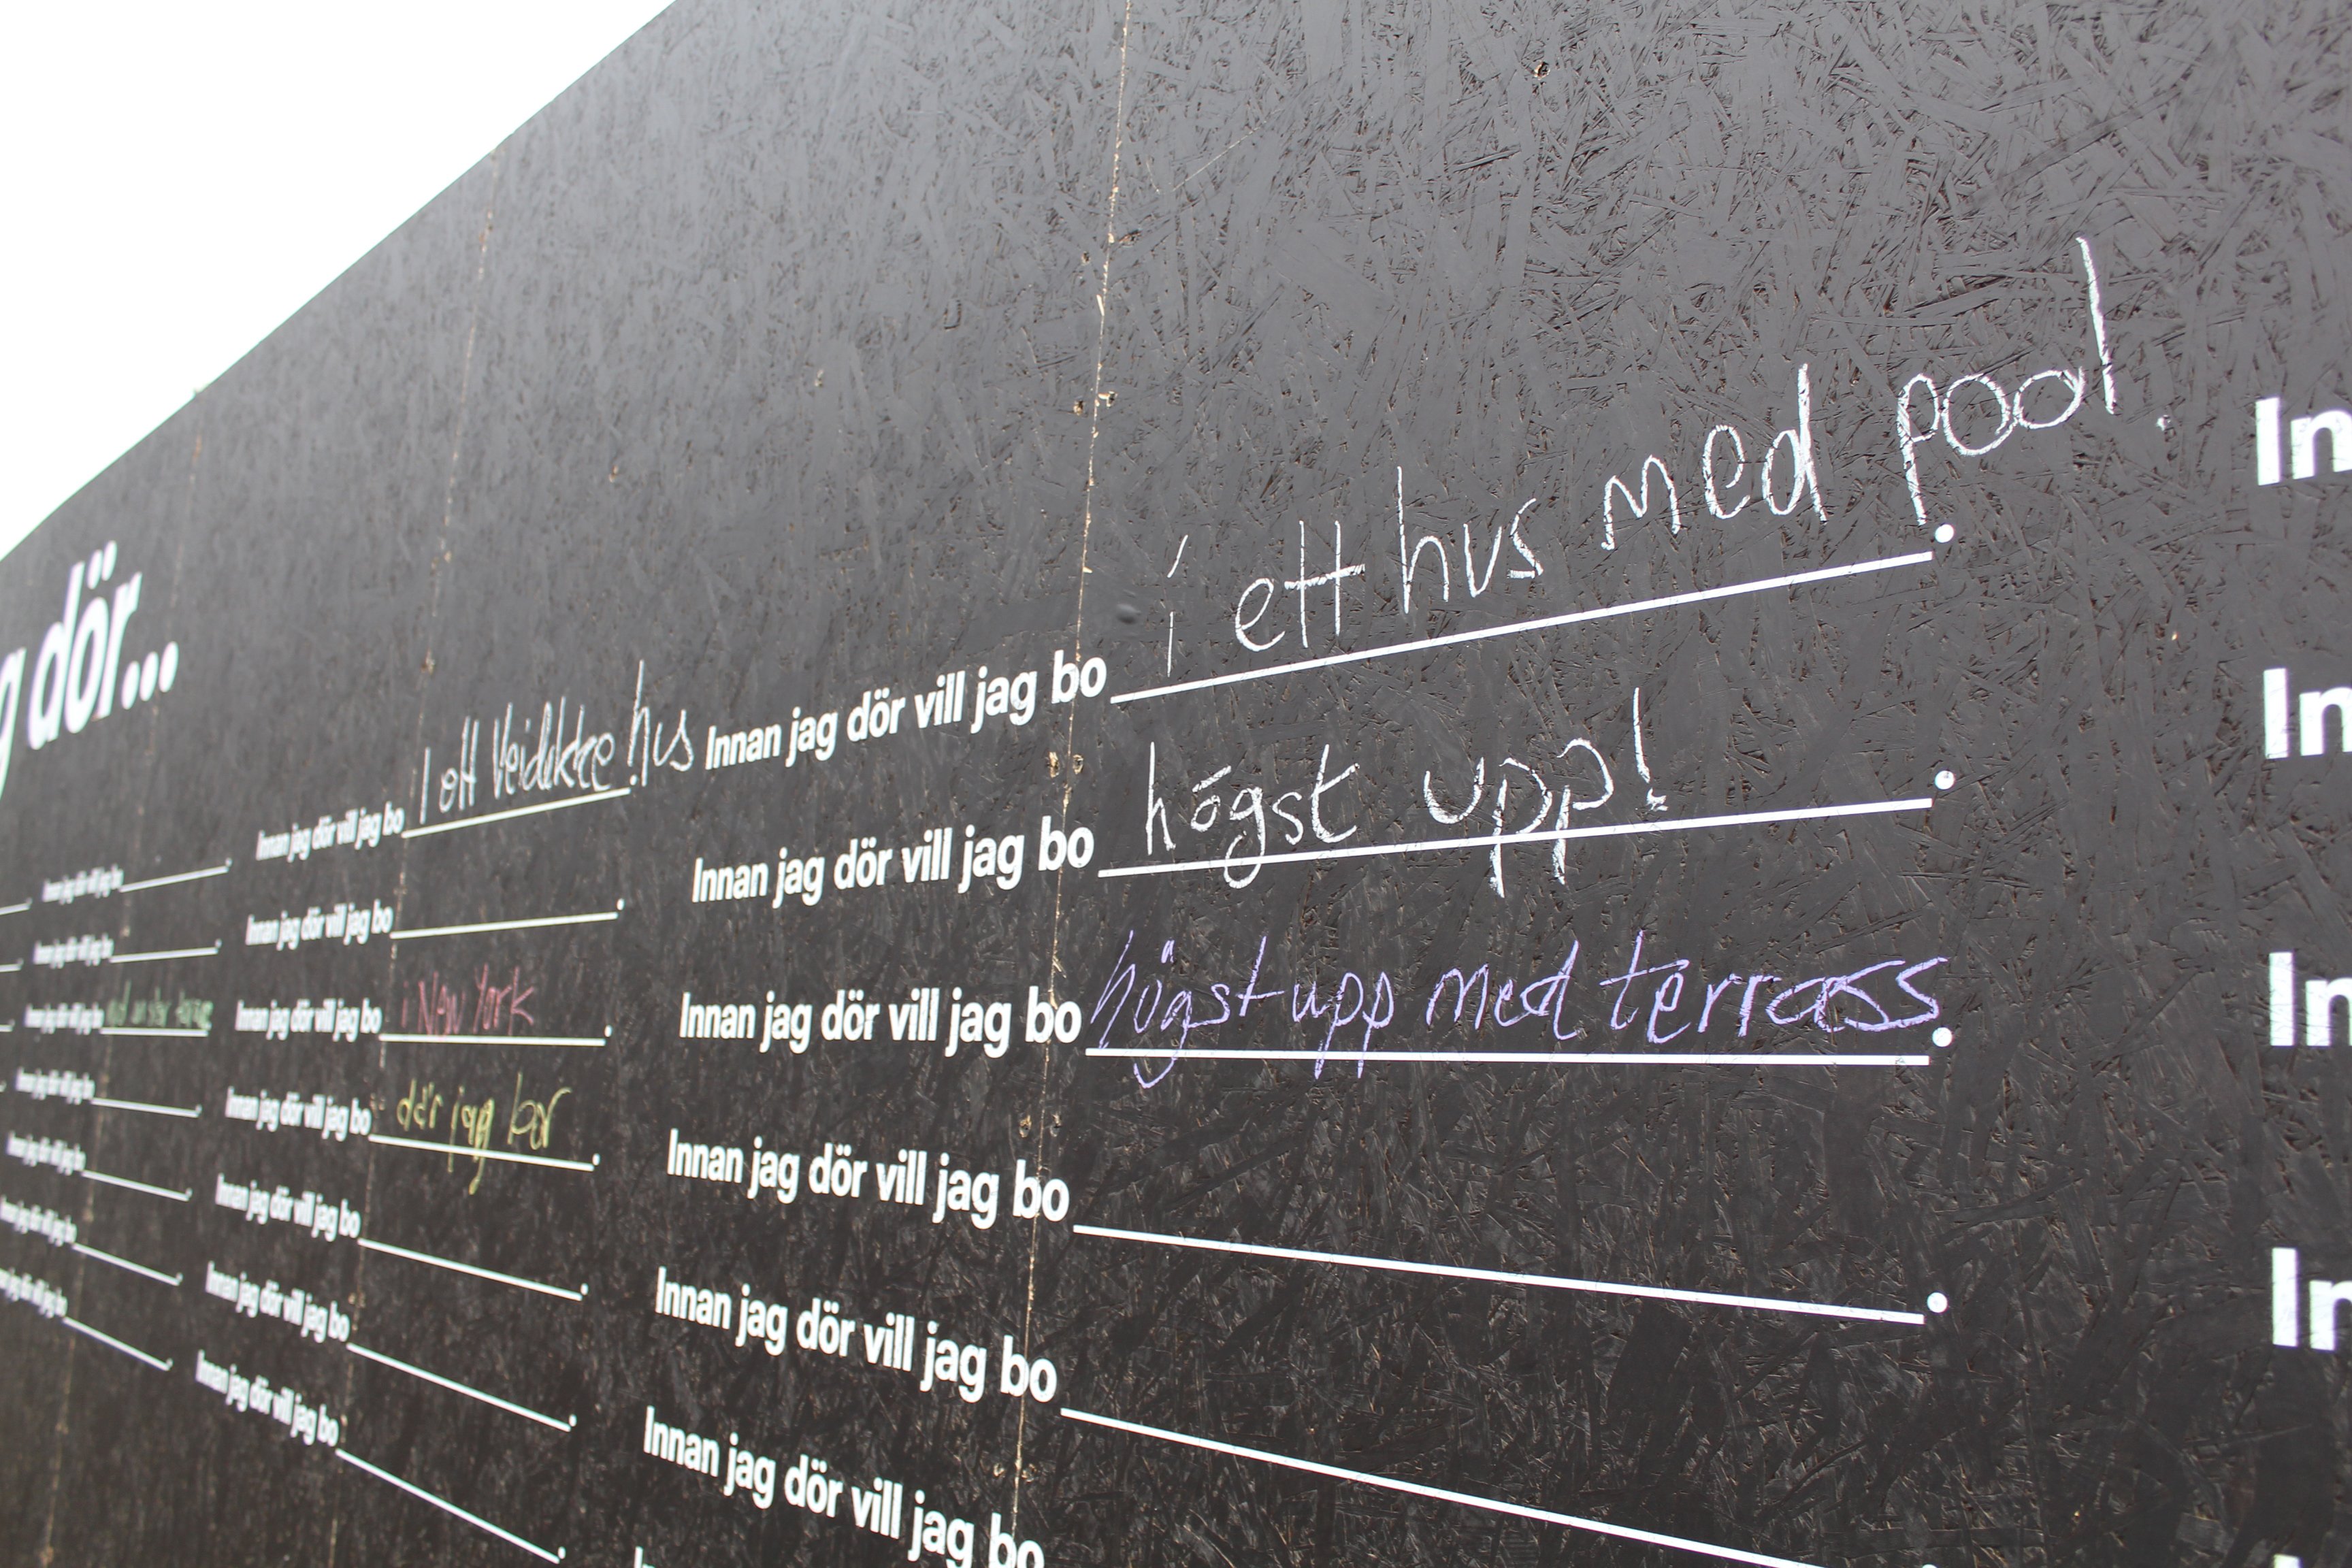 g dör...
Innan jag dör vill jag bo i ett hus med pool.
Innan jag dör vill jag bo högst upp!.
Innan jag dör vill jag bo högst upp med terrass.
Innan jag dör vill jag bo.
Innan jag dör vill jag bo
Innan jag dör vill jag bo
Innan jag dör vill jag bo I ett Veidekke hus.
Innan jag dör vill jag bo.
Innan jag dör vill jag bo i New York.
Innan jag dör vill jag bo där jag bor.
Innan jag dör vill jag bo.
Innan jag dör vill jag bo.
Innan jag dör vill jag bo.
Innan jag dör vill jag bo.
Innan jag dör vill jag bo.
Innan jag dör vill jag bo
Innan jag dör vill jag bo.
Innan jag dör vill jag bo.
Innan jag dör vill jag bo.
Innan jag dör vill jag bo.
In
In
In
In